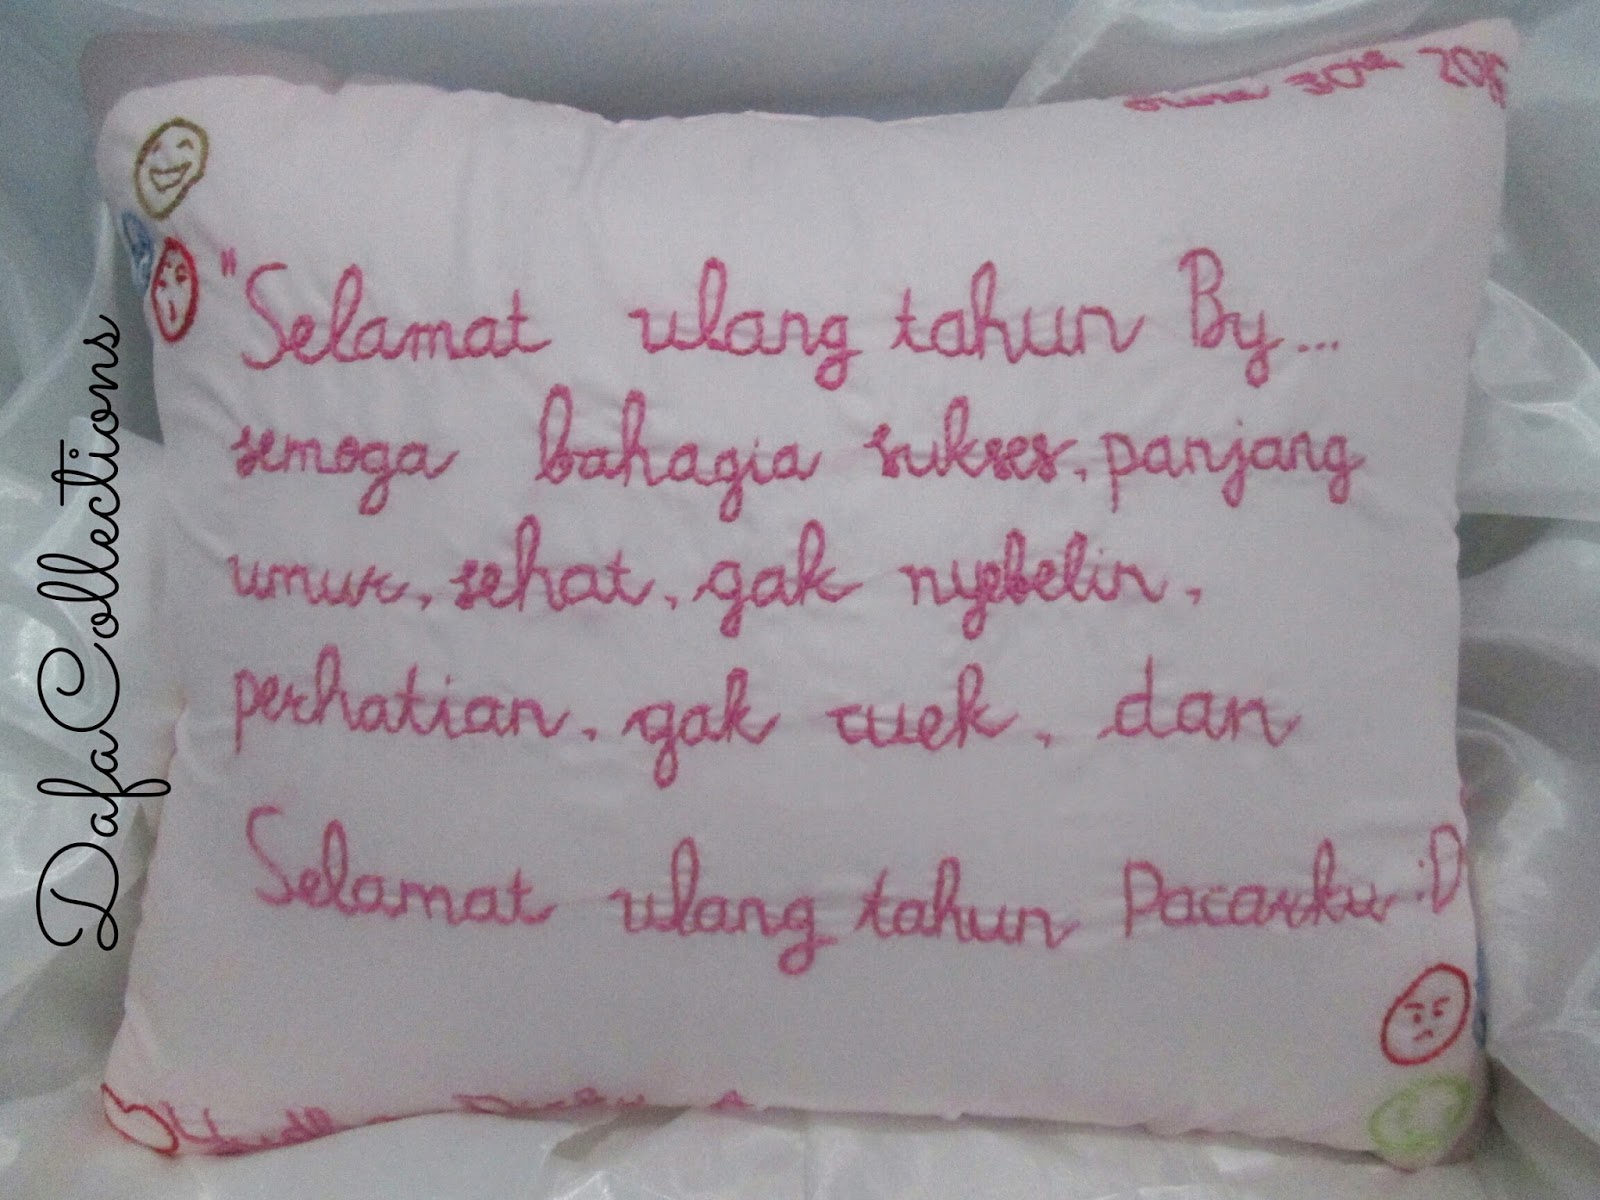 30th
"Selamat ulang tahun By...
semoga bahagia sukses, panjang
umur, sehat, gak nyebelin,
perhatian, gak cuek, dan
Selamat ulang tahun Pacarku :D
DafaCollections